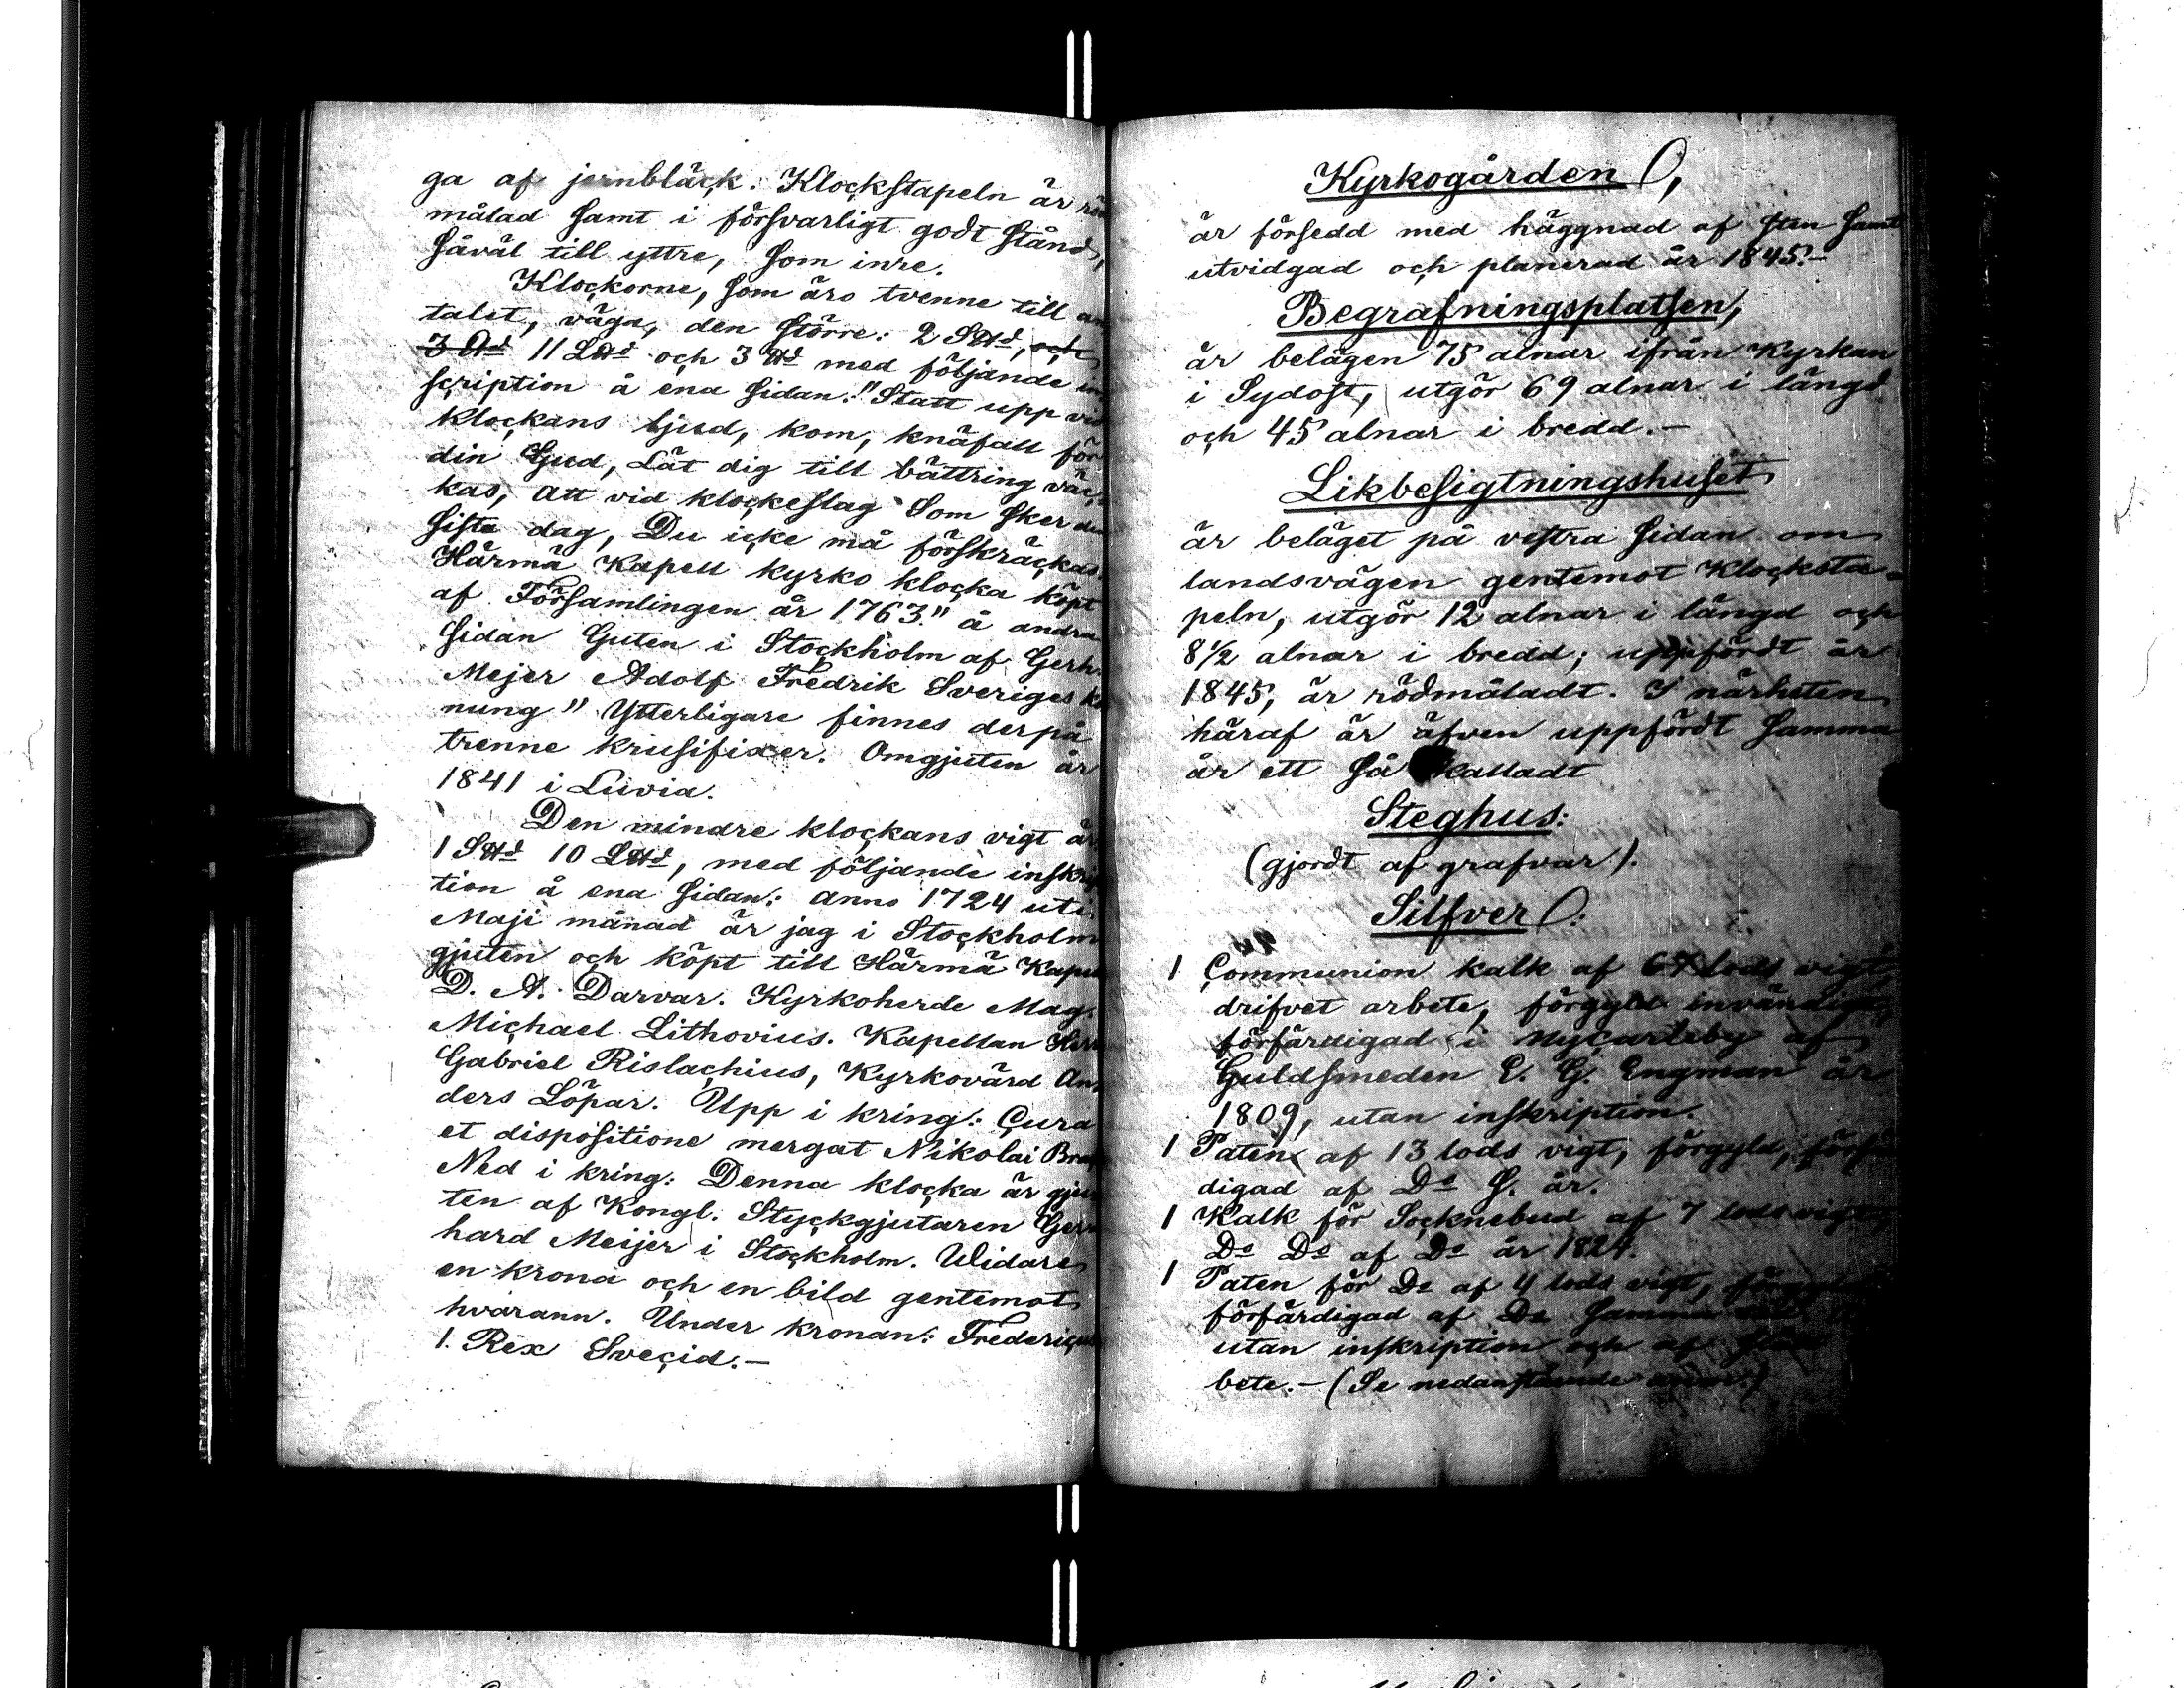 ga af jernbläck. Klockstapeln är röd
målad samt i försvarligt godt stånd,
såväl till yttre, som inre.
Klockorne, som äro tvenne till an
talet, väga, den större: 2 S℔d, och
3 ℔d 11 L℔d och 3 ℔d med följande in
scription å ena sidan: "Statt upp vid
klockans ljud, kom, knäfall för
din Gud, Låt dig till bättring väc-
kas, att vid klockeslag Som sker den
sista dag, Du icke må förskräckas.
Härmä Kapell kyrko klocka köpt
af Församlingen år 1763." å andra
sidan Guten i Stockholm af Gerh.
Mejer Adolf Fredrik Sveriges Ko
nung" Ytterligare finnes derpå
trenne krusifixer. Omgjuten år
1841 i Luvia.
Den mindre klockans vigt är
1 S℔d 10 L℔d, med följande inskrip
tion å ena sidan: anno 1724 uti
Maji månad är jag i Stockholm
gjuten och köpt till Härmä Kapell
D. A. Darvar. Kyrkoherde Mag.
Michael Lithovius. Kapellan Herr
Gabriel Rislachius, Kyrkovärd An-
ders Löpar. Upp i kring: Cura
et dispositione mergat Nikolai
Ned i kring: Denna klocka är gju
ten af Kongl. Styckgjutaren Ger
hard Meijer i Stockholm. Widare
en krona och en bild gentemot
hvarann. Under kronan: Fredericus
1. Rex Svecid.-
Kyrkogården,
är försedd med häggnad af sten samt
utvidgad och planerad år 1845.-
Begrafningsplatsen,
är belägen 75 alnar ifrån Kyrkan
i Sydost, utgör 69 alnar i längd
och 45 alnar i bredd.-
Likbesigtningshuset
är beläget på vestra sidan om
landsvägen gentemot Klocksta-
peln, utgör 12 alnar i längd och
8½ alnar i bredd; uppfördt år
1845, är rödmåladt. I närheten
häraf är äfven uppfördt samma
år ett så kalladt
Steghus:
(gjordt af grafvar).
Silfver:
1 Communion kalk af 67 lods vigt,
drifvet arbete, förgyld invändig,
förfärdigad i Nycarleby af
Guldsmeden E. G. Engman år
1809, utan inskription.
1 Paten af 13 lods vigt, förgyld, förfä
digad af Do S. år.
1 Kalk för Socknebud af 7 lods vigt,
Do Do af Do år 1824.
1 Paten för Do af 4 lods vigt,
förfärdigad af Do samma
utan inskription och af
bete.- (Se nedanstående